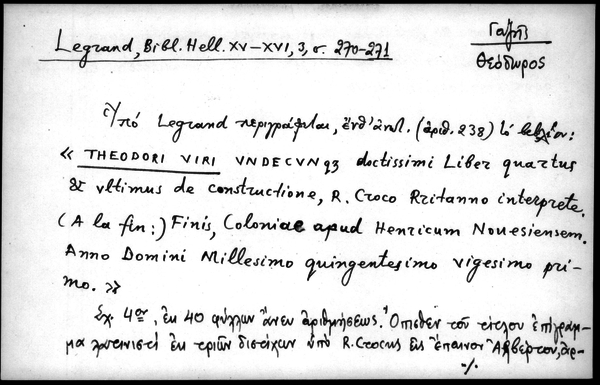 Legrand, Bibl. Hell. XV–XVI, 3, σ. 270-271
Γαζῆς
Θεόδωρος
Ὑπό Legrand περιγράφεται, ἐνθ' ἀνωτ. (ἀριθ. 238) τό βιβλίον:
« THEODORI VIRI VNDECVNqꝫ doctissimi Liber quartus
& vltimus de constructione, R. Croco Rritanno interprete.
(A la fin:) Finis, Coloniae apud Henricum Nouesiensem.
Anno Domini Millesimo quingentesimo vigesimo pri-
mo. »
Σχ. 4ον, ἐκ 40 φύλλων ἄνευ ἀριθμήσεως. Ὄπισθεν τοῦ τίτλου ἐπίγραμ-
μα λατινιστί ἐκ τριῶν διστίχων ὑπό R. Crocus εἰς ἔπαινον Ἀλβέρτου, ἀρ-
./.